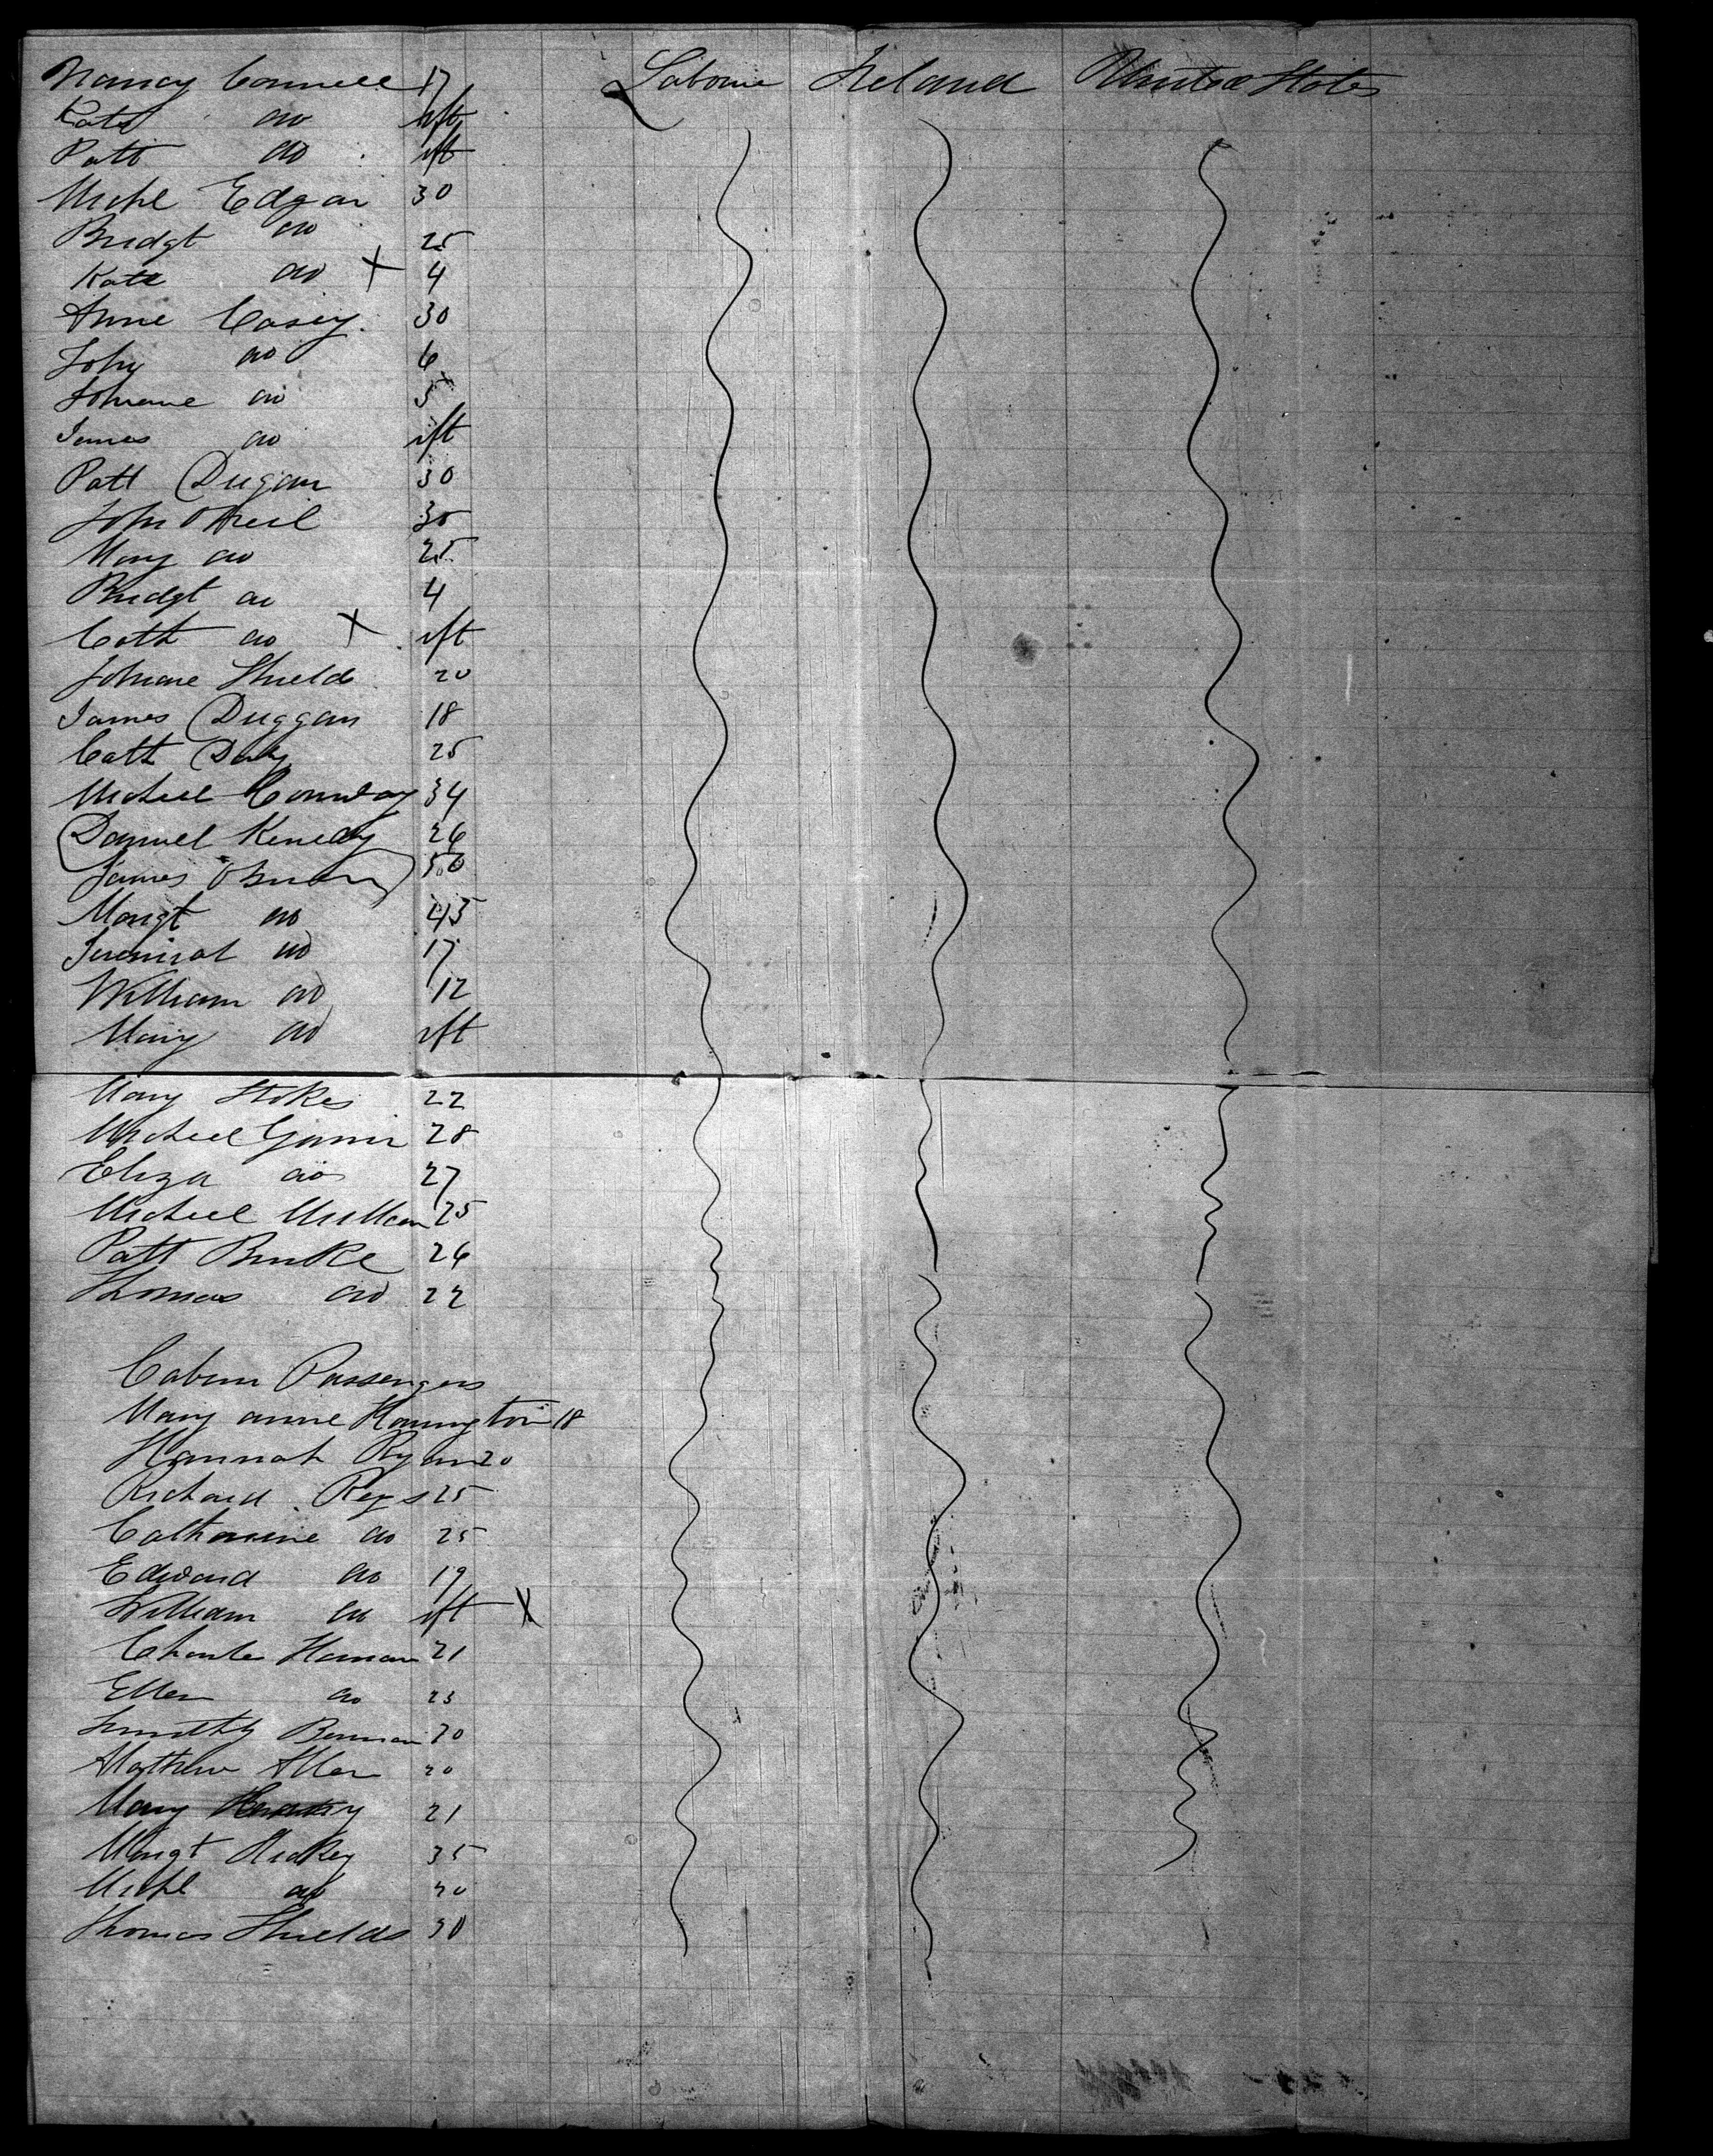 Nancy Connell 17 Laborer Ireland United States
Kate do ift
Patt do ift
Michl Edgar 30
Bridgt do 25
Kate do X 4
Anne Casey 30
John do 6
Johane do 5
James do ift
Patt Dugan 30
John ONeil 30
Mary do 25
Bridgt do 4
Cath do X ift
Johane Shields 20
James Duggan 18
Cath Daly 25
Michael Conway 34
Daniel Kenedy 26
James OBrien 50
Margt do 45
Jeremiah do 17
William do 12
Mary do ift
Mary Stokes 22
Michael 28
Eliza do 27
Michael Mullan 25
Patt Burke 26
Thomas do 22
Cabin Passengers
Mary anne Harrington 18
Hannah Ryan 20
Richard 25
Catharine do 25
Edward do 19
William do ift X
Charles 21
Ellen do 23
Timothy 20
Mathew Allen 20
Mary 21
Margt Hickey 35
Michl do 20
Thomas Shields 30